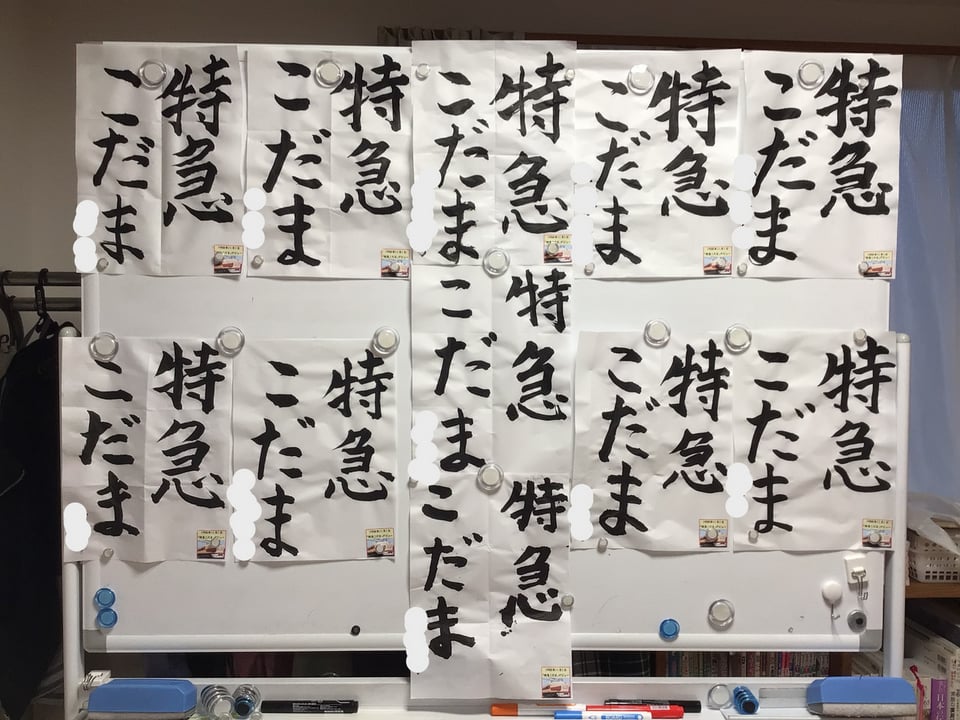 特急
こだま
特急
こだま
特急
こだま
特急
こだま
特急
こだま
特急
こだま
特急
こだま
特急
こだま
特急
こだま
特急
こだま
特急
こだま